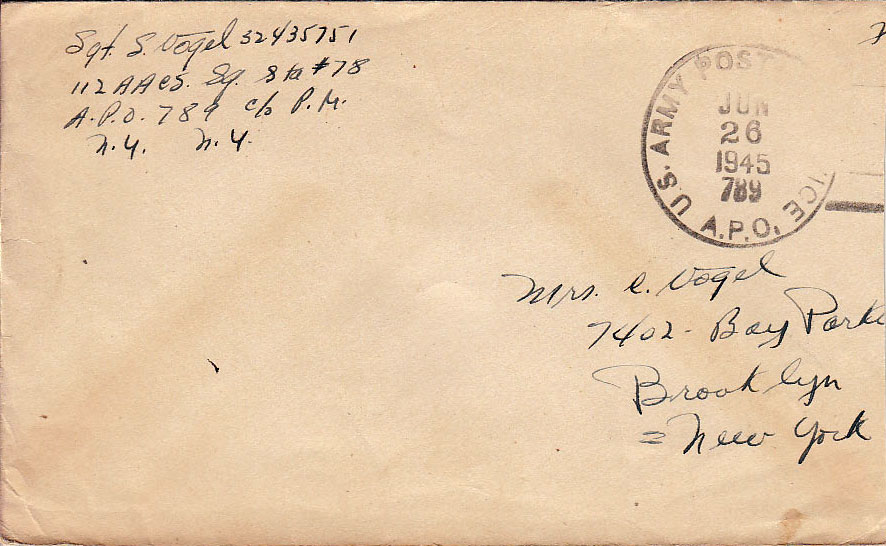 Sgt. S. Vogel 32435751
112 AACS. Sq. Sta #78
A.P.O. 789 c/o P.M.
N.Y. N.Y.
U.S. ARMY POST ICE
JUN
26
1945
789
A.P.O.
Mrs. C. Vogel
7402 - Bay Park
Brooklyn
= New York